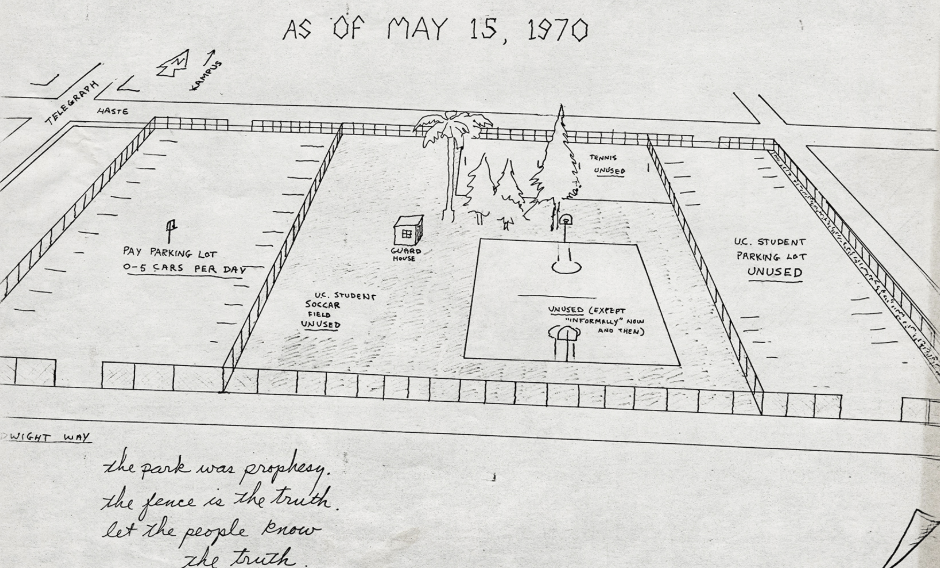 AS OF MAY 15, 1970
KAMPUS
TELEGRAPH
HASTE
TENNIS
UNUSED
PAY PARKING LOT
0-5 CARS PER DAY
GUARD
HOUSE
U.C. STUDENT
SOCCAR
FIELD
UNUSED
UNUSED (EXCEPT
"INFORMALLY" NOW
AND THEN)
U.C. STUDENT
PARKING LOT
UNUSED
DWIGHT WAY
the park was prophesy.
the fence is the truth.
let the people know
the truth.